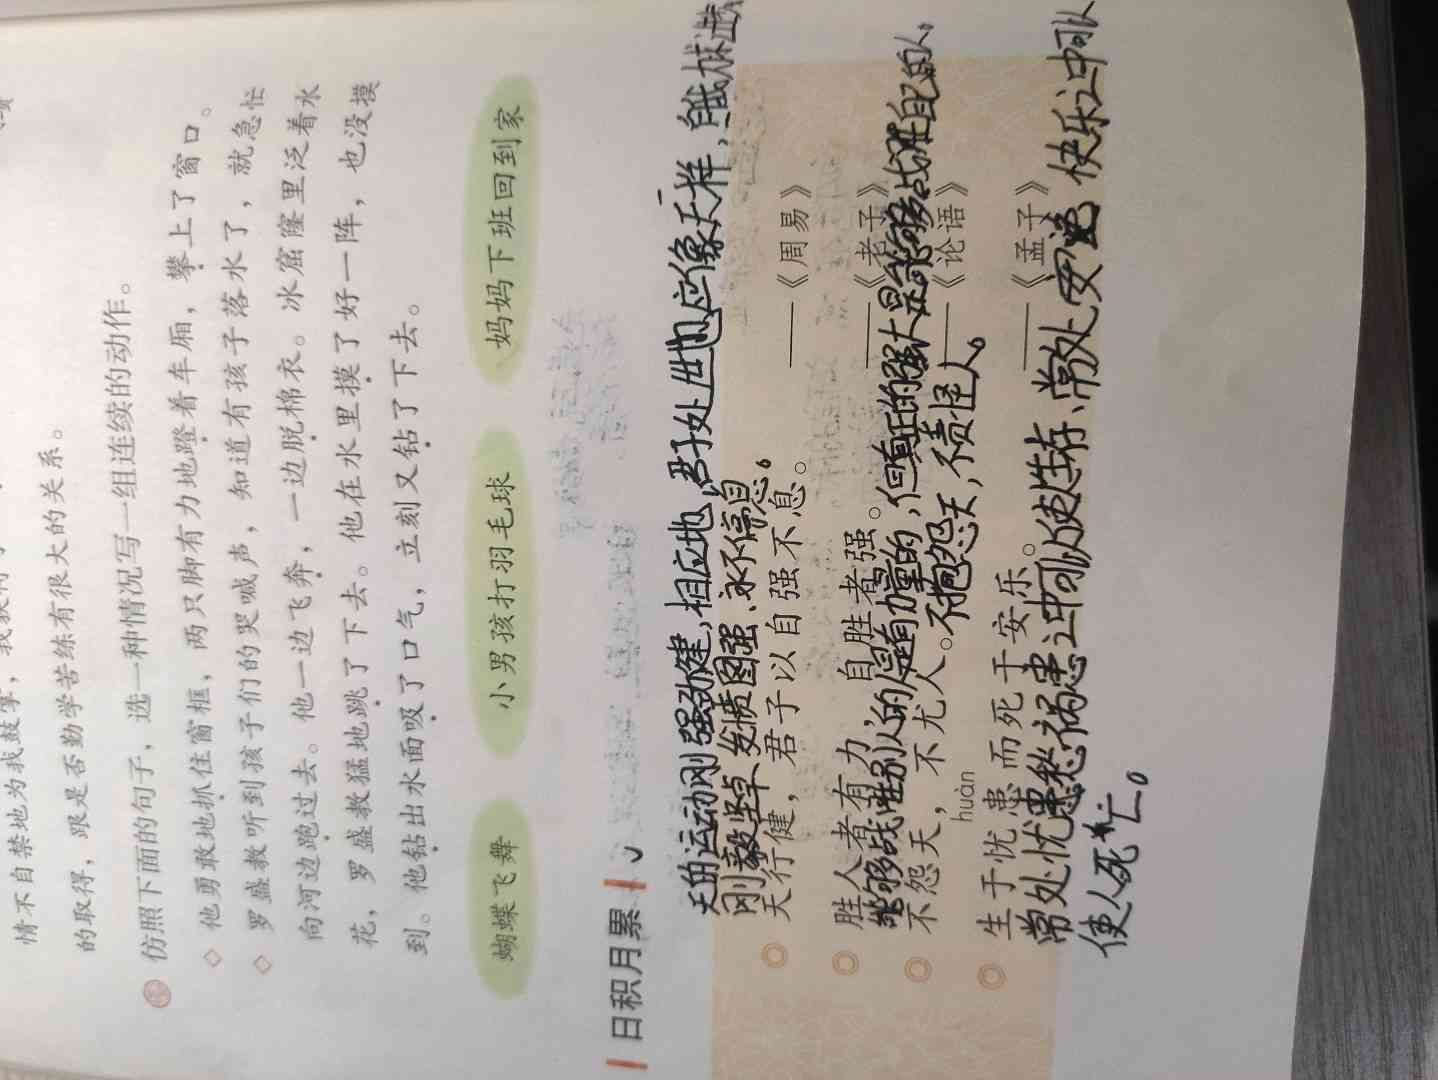 情不自禁地为我鼓掌，我获得了
的取得，跟是否勤学苦练有很大的关系。
仿照下面的句子，选一种情况写一组连续的动作。
◇ 他勇敢地抓住窗框，两只脚有力地蹬着车厢，攀上了窗口。
◇ 罗盛教听到孩子们的哭喊声，知道有孩子落水了，就急忙
向河边跑过去。他一边飞奔，一边脱棉衣。冰窟窿里泛着水
花，罗盛教猛地跳了下去。他在水里摸了好一阵，也没摸
到。他钻出水面吸了口气，立刻又钻了下去。
蝴蝶飞舞 小男孩打羽毛球 妈妈下班回到家
日积月累
天的运动刚强劲健，相应地，君子处世也应像天一样，自我力求进步
刚毅坚卓，发愤图强、永不停息。
天行健，君子以自强不息。 ——《周易》
胜人者有力，自胜者强。 ——《老子》
能够战胜别人的是有力量的，但真正的强大是能够战胜自己的人。
不怨天，不尤人。 ——《论语》
不抱怨天，不责怪人。
huàn
生于忧患而死于安乐。 ——《孟子》
常处忧愁祸患之中可以使人生存、常处安逸快乐之中可以
使人死亡。